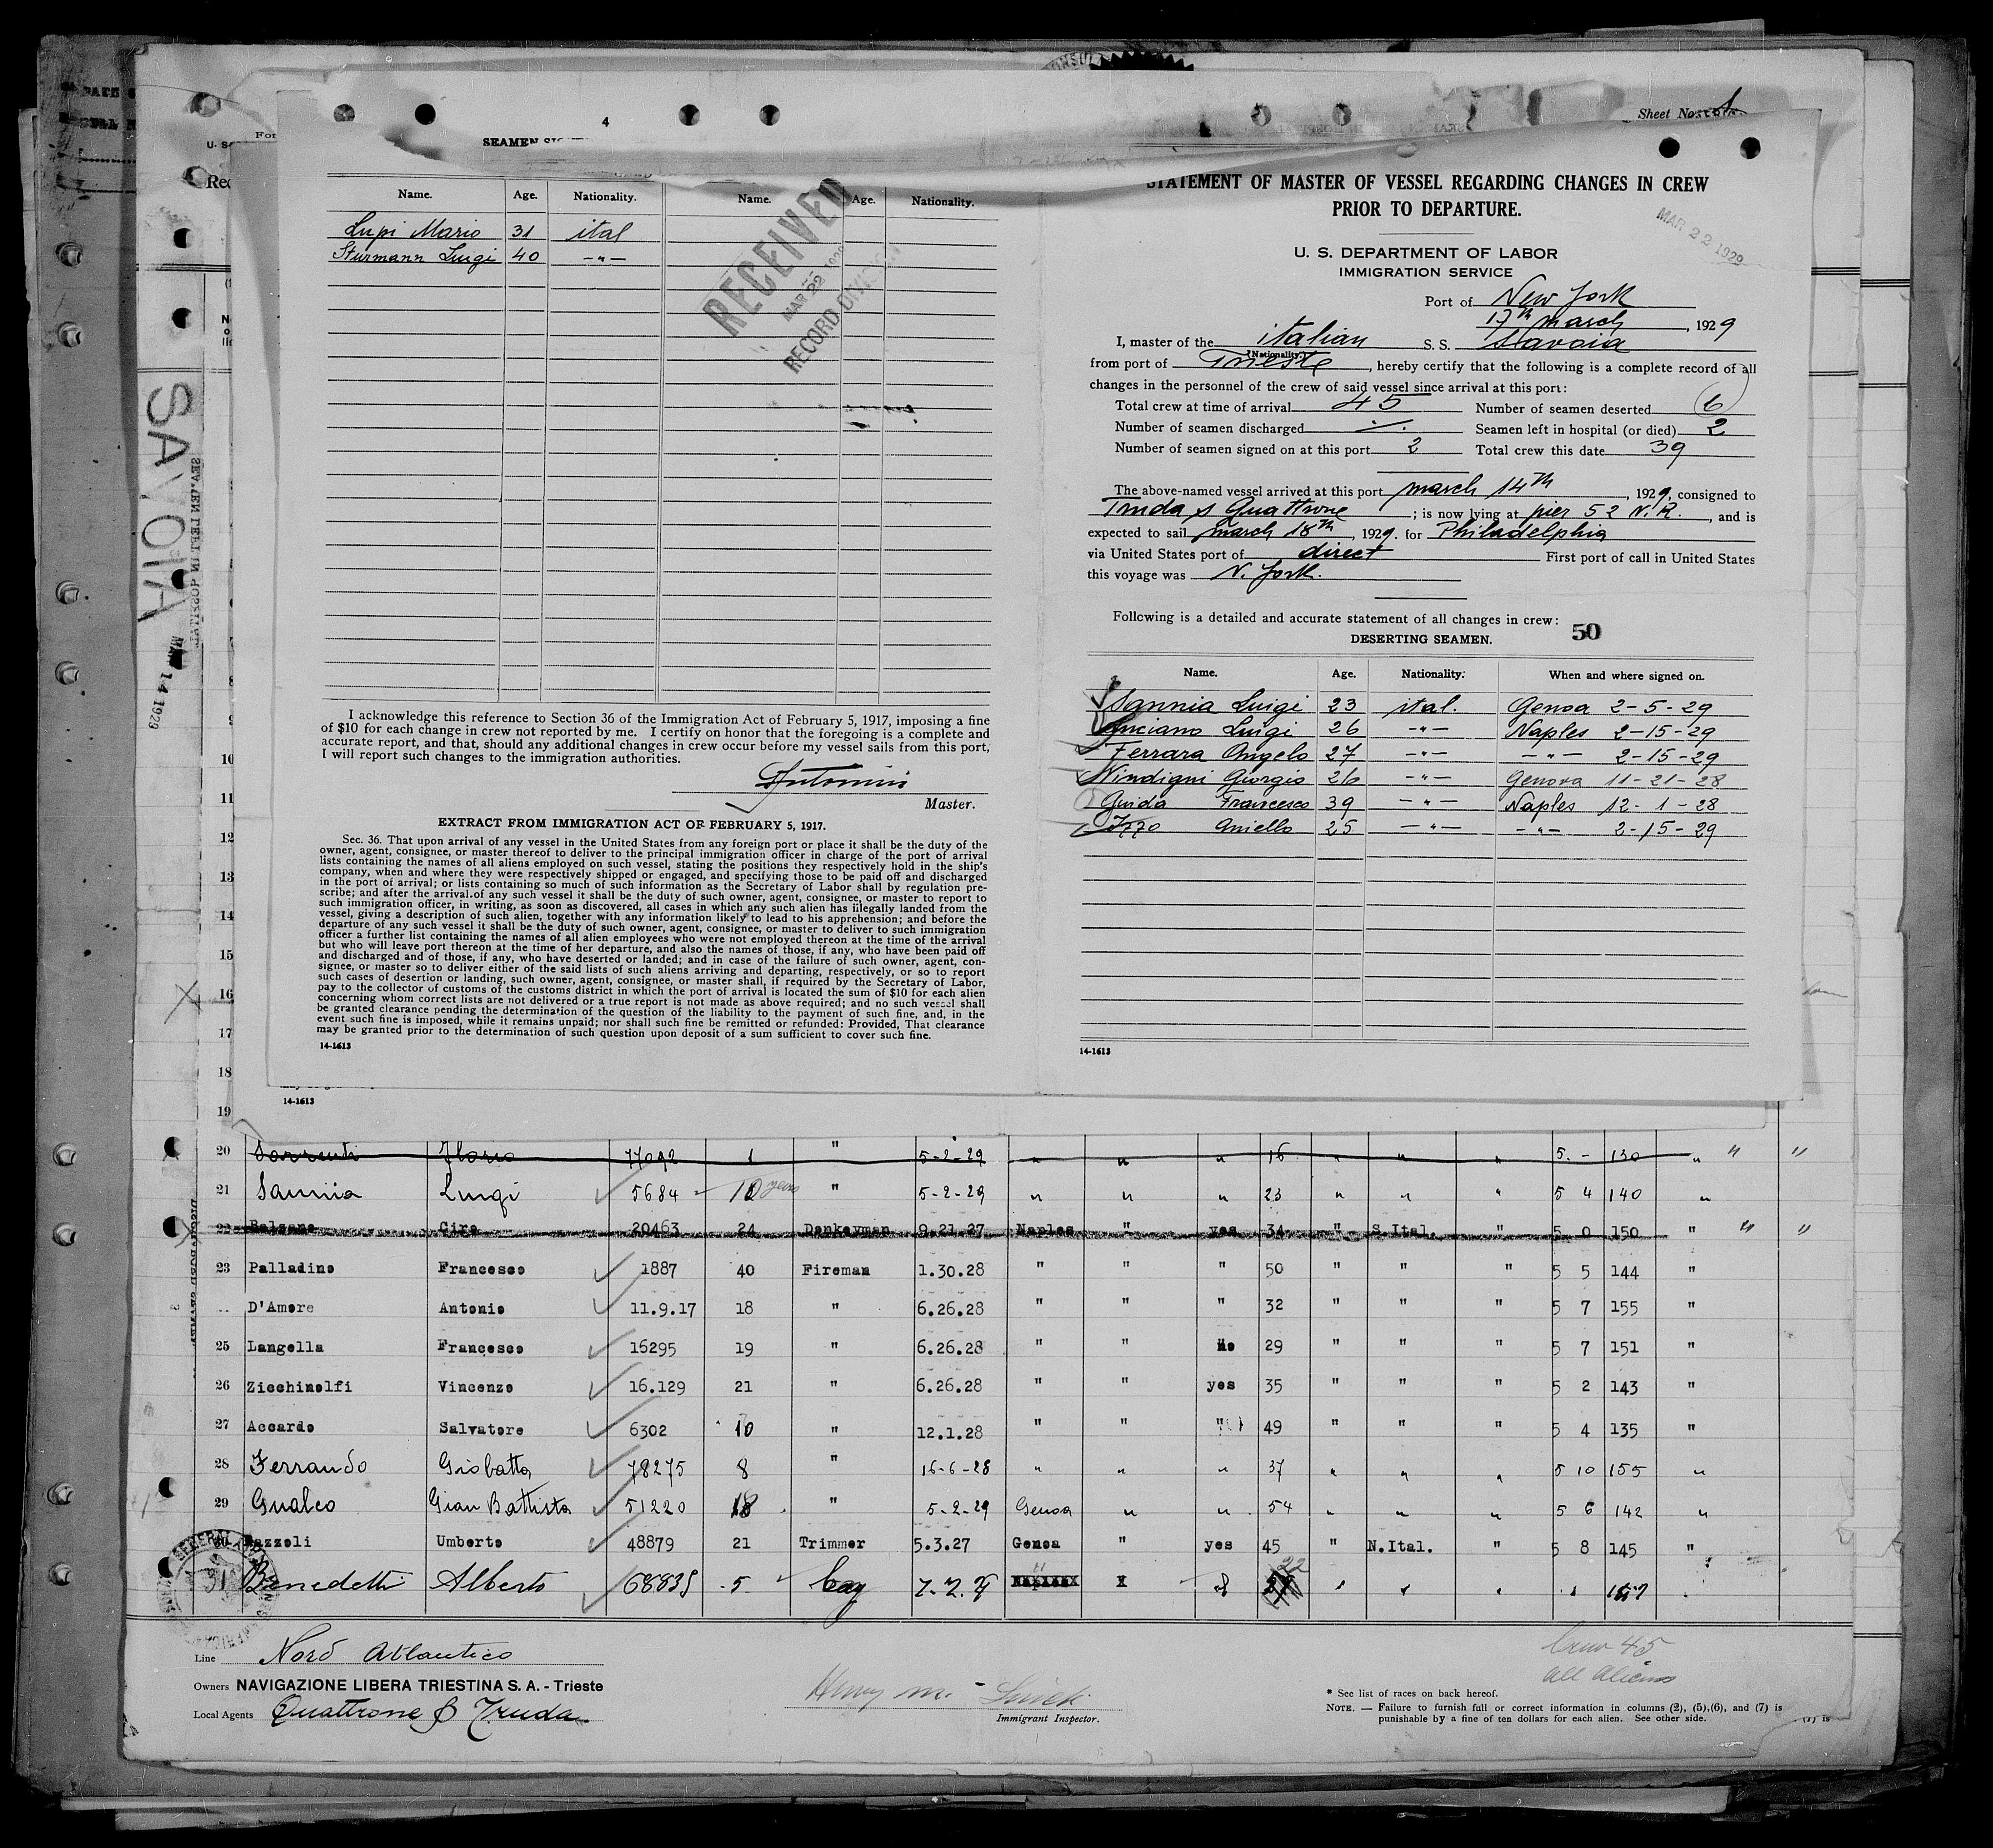 4
SEAMEN
Name. Age. Nationality. Name. Age. Nationality.
Lupi Mario 31 ital
Sturmann Luigi 40 -"-
RECEIVED
MAR 22 1929
RECORD DIVISION
I acknowledge this reference to Section 36 of the Immigration Act of February 5, 1917, imposing a fine
of $10 for each change in crew not reported by me. I certify on honor that the foregoing is a complete and
accurate report, and that, should any additional changes in crew occur before my vessel sails from this port,
I will report such changes to the immigration authorities.
Antonini
Master.
EXTRACT FROM IMMIGRATION ACT OF FEBRUARY 5, 1917.
Sec. 36. That upon arrival of any vessel in the United States from any foreign port or place it shall be the duty of the
owner, agent, consignee, or master thereof to deliver to the principal immigration officer in charge of the port of arrival
lists containing the names of all aliens employed on such vessel, stating the positions they respectively hold in the ship's
company, when and where they were respectively shipped or engaged, and specifying those to be paid off and discharged
in the port of arrival; or lists containing so much of such information as the Secretary of Labor shall by regulation pre-
scribe; and after the arrival of any such vessel it shall be the duty of such owner, agent, consignee, or master to report to
such immigration officer, in writing, as soon as discovered, all cases in which any such alien has illegally landed from the
vessel, giving a description of such alien, together with any information likely to lead to his apprehension; and before the
departure of any such vessel it shall be the duty of such owner, agent, consignee, or master to deliver to such immigration
officer a further list containing the names of all alien employees who were not employed thereon at the time of the arrival
but who will leave port thereon at the time of her departure, and also the names of those, if any, who have been paid off
and discharged and of those, if any, who have deserted or landed; and in case of the failure of such owner, agent, con-
signee, or master so to deliver either of the said lists of such aliens arriving and departing, respectively, or so to report
such cases of desertion or landing, such owner, agent, consignee, or master shall, if required by the Secretary of Labor,
pay to the collector of customs of the customs district in which the port of arrival is located the sum of $10 for each alien
concerning whom correct lists are not delivered or a true report is not made as above required; and no such vessel shall
be granted clearance pending the determination of the question of the liability to the payment of such fine, and, in the
event such fine is imposed, while it remains unpaid; nor shall such fine be remitted or refunded: Provided, That clearance
may be granted prior to the determination of such question upon deposit of a sum sufficient to cover such fine.
14-1613
Sheet No.
STATEMENT OF MASTER OF VESSEL REGARDING CHANGES IN CREW
PRIOR TO DEPARTURE.
MAR 22 1929
U. S. DEPARTMENT OF LABOR
IMMIGRATION SERVICE
Port of New York
17th march, 1929
I, master of the italian S. S. Savoia
(Nationality.)
from port of Trieste, hereby certify that the following is a complete record of all
changes in the personnel of the crew of said vessel since arrival at this port:
Total crew at time of arrival 45 Number of seamen deserted 6
Number of seamen discharged ./. Seamen left in hospital (or died) 2
Number of seamen signed on at this port 2 Total crew this date 39
The above-named vessel arrived at this port march 14th, 1929, consigned to
Truda & Quattrone; is now lying at pier 52 N.R., and is
expected to sail march 18th, 1929. for Philadelphia
via United States port of direct First port of call in United States
this voyage was N. York.
Following is a detailed and accurate statement of all changes in crew:
DESERTING SEAMEN. 50
Name. Age. Nationality. When and where signed on.
Sannia Luigi 23 ital. Genoa 2-5-29
Luciano Luigi 26 -"- Naples 2-15-29
Ferrara Angelo 27 -"- -"- 2-15-29
Vindigni Giorgio 26 -"- Genova 11-21-28
Guida Francesco 39 -"- Naples 12-1-28
Izzo Aniello 25 -"- -"- 2-15-29
14-1613
SAVOIA
MAR 14 1929
SEAMEN LEFT IN HOSPITAL
9
10
11
12
13
14
15
16
17
18
14-1613
19
20 Sorrenti Florio 77092 1 " 5-2-29 " " " 16 " " " 5 - 130 " " "
21 Sannia Luigi 5684 10 years " 5-2-29 " " " 23 " " " 5 4 140 "
22 Balzano Ciro 20463 24 Donkeyman 9.21.27 Naples " yes 34 " S.Ital. " 5 0 150 " " "
23 Palladino Francesco 1887 40 Fireman 1.30.28 " " " 50 " " " 5 5 144 "
D'Amore Antonio 11.9.17 18 " 6.26.28 " " " 32 " " " 5 7 155 "
25 Langella Francesco 16295 19 " 6.26.28 " " No 29 " " " 5 7 151 "
26 Zicchinolfi Vincenzo 16.129 21 " 6.26.28 " " yes 35 " " " 5 2 143 "
27 Accardo Salvatore 6302 10 " 12.1.28 " " " 49 " " " 5 4 135 "
28 Ferrando Giobatta 78275 8 " 16-6-28 " " " 37 " " " 5 10 155 "
29 Gualco Gian Battista 51220 18 " 5-2-29 Genoa " " 54 " " " 5 6 142 "
30 Bazzoli Umberto 48879 21 Trimmer 5.3.27 Genoa " yes 45 " N.Ital. " 5 8 145 "
31 Benedetti Alberto 68835 5 boy 22
Line Nord Atlantico
Owners NAVIGAZIONE LIBERA TRIESTINA S. A. - Trieste
Local Agents Quattrone & Truda
Immigrant Inspector.
Crew 45
all aliens
* See list of races on back hereof.
NOTE. — Failure to furnish full or correct information in columns (2), (5),(6), and (7) is
punishable by a fine of ten dollars for each alien. See other side.